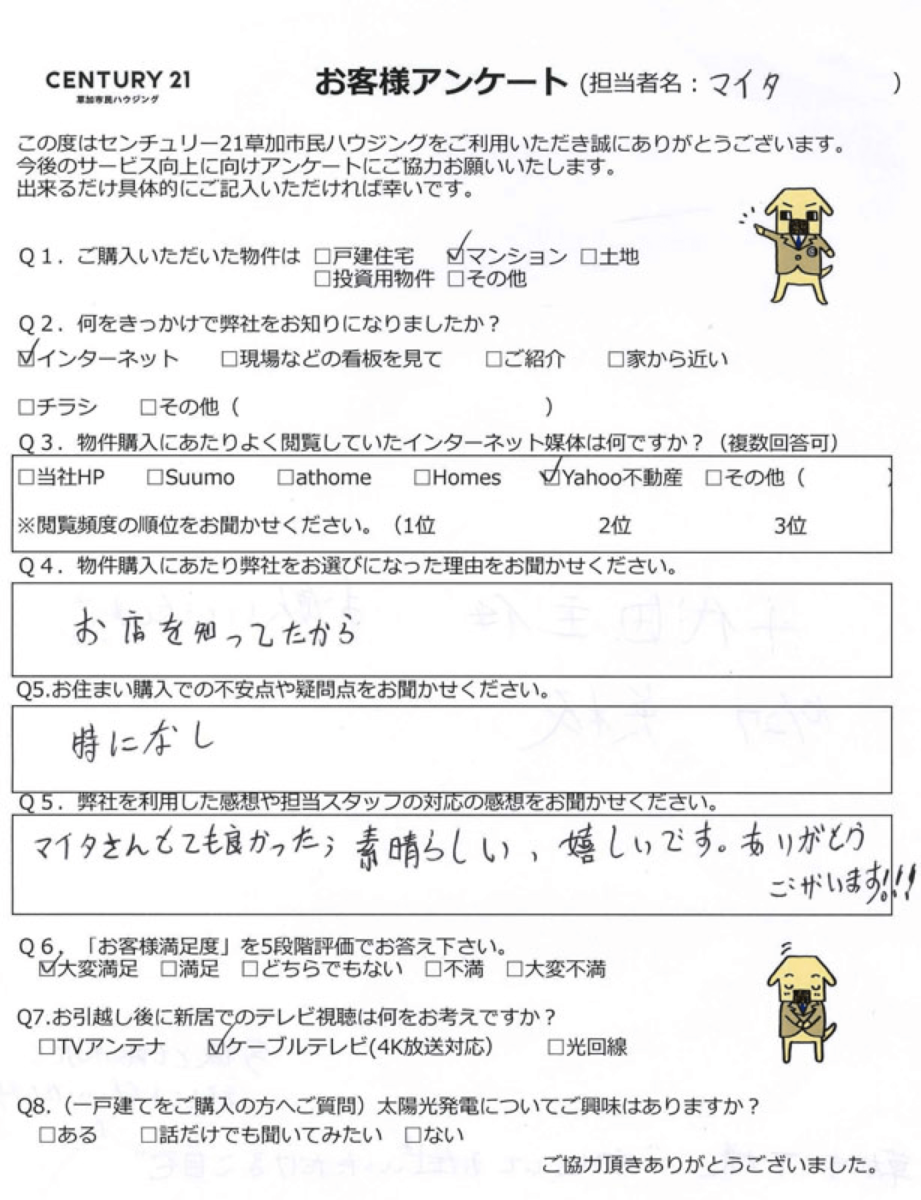 CENTURY 21
草加市民ハウジング
お客様アンケート (担当者名：マイタ )
この度はセンチュリー21草加市民ハウジングをご利用いただき誠にありがとうございます。
今後のサービス向上に向けアンケートにご協力お願いいたします。
出来るだけ具体的にご記入いただければ幸いです。
Ｑ１．ご購入いただいた物件は □戸建住宅 ☑マンション □土地
□投資用物件 □その他
Ｑ２．何をきっかけで弊社をお知りになりましたか？
☑インターネット □現場などの看板を見て □ご紹介 □家から近い
□チラシ □その他（ ）
Ｑ３．物件購入にあたりよく閲覧していたインターネット媒体は何ですか？（複数回答可）
□当社HP □Suumo □athome □Homes ☑Yahoo不動産 □その他（ ）
※閲覧頻度の順位をお聞かせください。（1位 2位 3位
Ｑ４．物件購入にあたり弊社をお選びになった理由をお聞かせください。
お店を知ってたから
Q5.お住まい購入での不安点や疑問点をお聞かせください。
時になし
Ｑ５．弊社を利用した感想や担当スタッフの対応の感想をお聞かせください。
マイタさんとても良かった；素晴らしい、嬉しいです。ありがとう
ございます!!!
Ｑ６．「お客様満足度」を5段階評価でお答え下さい。
☑大変満足 □満足 □どちらでもない □不満 □大変不満
Q7.お引越し後に新居でのテレビ視聴は何をお考えですか？
□TVアンテナ ☑ケーブルテレビ(4K放送対応） □光回線
Q8.（一戸建てをご購入の方へご質問）太陽光発電についてご興味はありますか？
□ある □話だけでも聞いてみたい □ない
ご協力頂きありがとうございました。